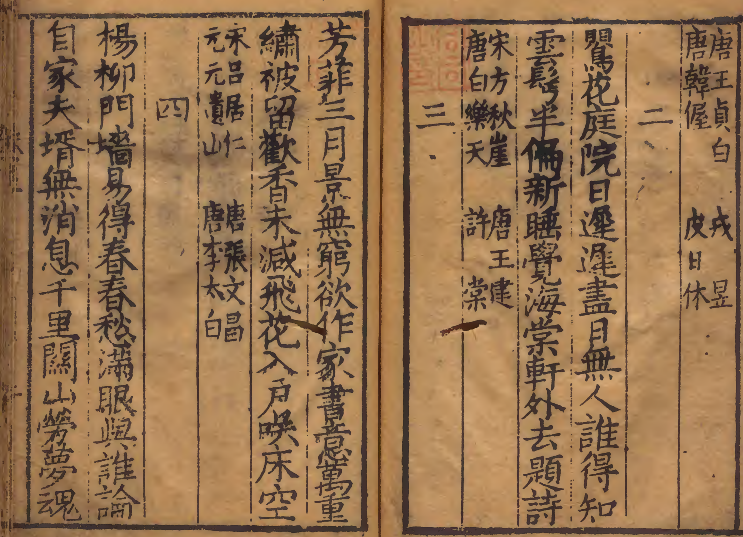 唐王貞白　戎昱
唐韓偓　皮日休
二
鸎花庭院日遲遲盡日無人誰得知
雲髩半偏新睡覺海棠軒外去題詩
宋方秋崖　唐王建
唐白樂天　許棠
三
芳菲三月景無窮欲作家書意萬重
繡被留歡香未減飛花入户喚床空
宋呂居仁　唐張文昌
元元遺山　唐李太白
四
楊柳門墻易得春春愁滿眼與誰論
自家夫壻無消息千里關山勞夢魂